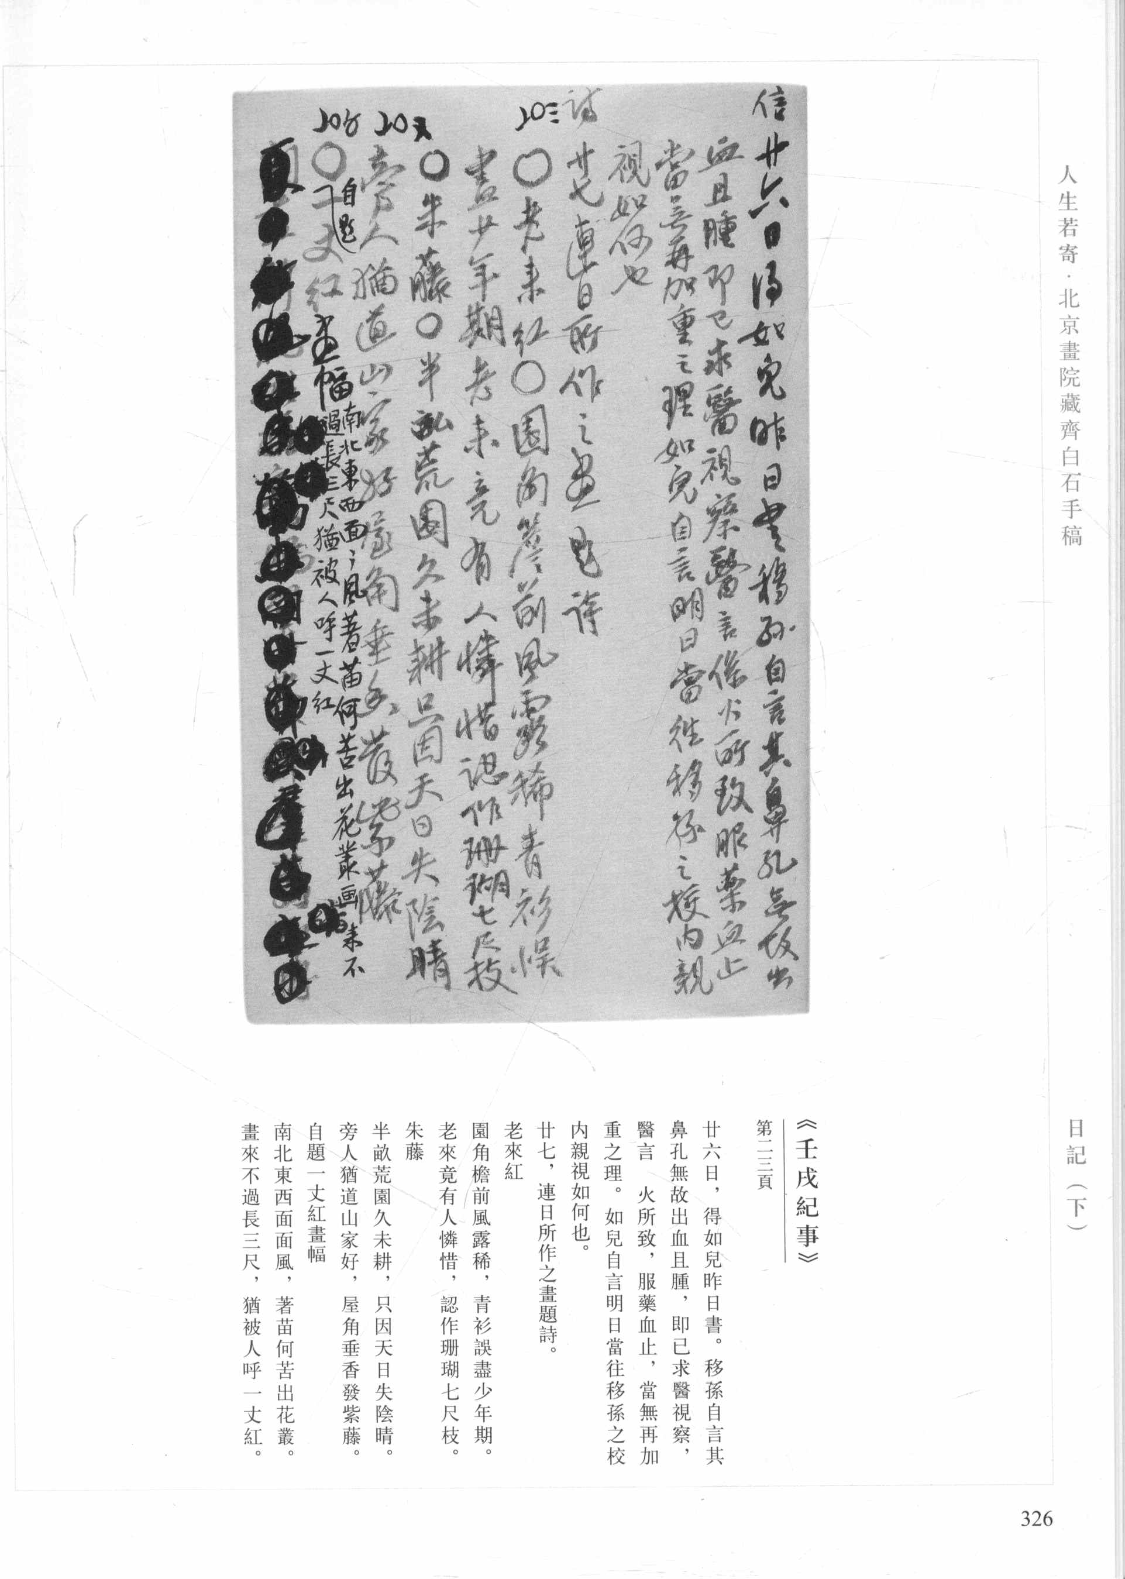 人生若寄·北京畫院藏齊白石手稿
日記（下）
信 廿六日得如兒昨日書移孫自言其鼻孔無故出
血且腫即已求醫視察醫言係火所致服藥血止
當無再加重之理如兒自言明日當往移孫之校內親
視如何也
詩 廿七連日所作之畫題詩
〇老來紅〇園角簷前風露稀青衫悮
盡少年期老來竟有人憐惜認作珊瑚七尺枝
〇朱藤〇半畝荒園久未耕只因天日失陰晴
旁人猶道山家好屋角垂香發紫藤
〇自題一丈紅畫幅
南北東西面〻風著苗何苦出花叢画來不
過長三尺猶被人呼一丈紅
《壬戌紀事》
第二三頁
廿六日，得如兒昨日書。移孫自言其
鼻孔無故出血且腫，即已求醫視察，
醫言　火所致，服藥血止，當無再加
重之理。如兒自言明日當往移孫之校
內親視如何也。
廿七，連日所作之畫題詩。
老來紅
園角檐前風露稀，青衫誤盡少年期。
老來竟有人憐惜，認作珊瑚七尺枝。
朱藤
半畝荒園久未耕，只因天日失陰晴。
旁人猶道山家好，屋角垂香發紫藤。
自題一丈紅畫幅
南北東西面面風，著苗何苦出花叢。
畫來不過長三尺，猶被人呼一丈紅。
326